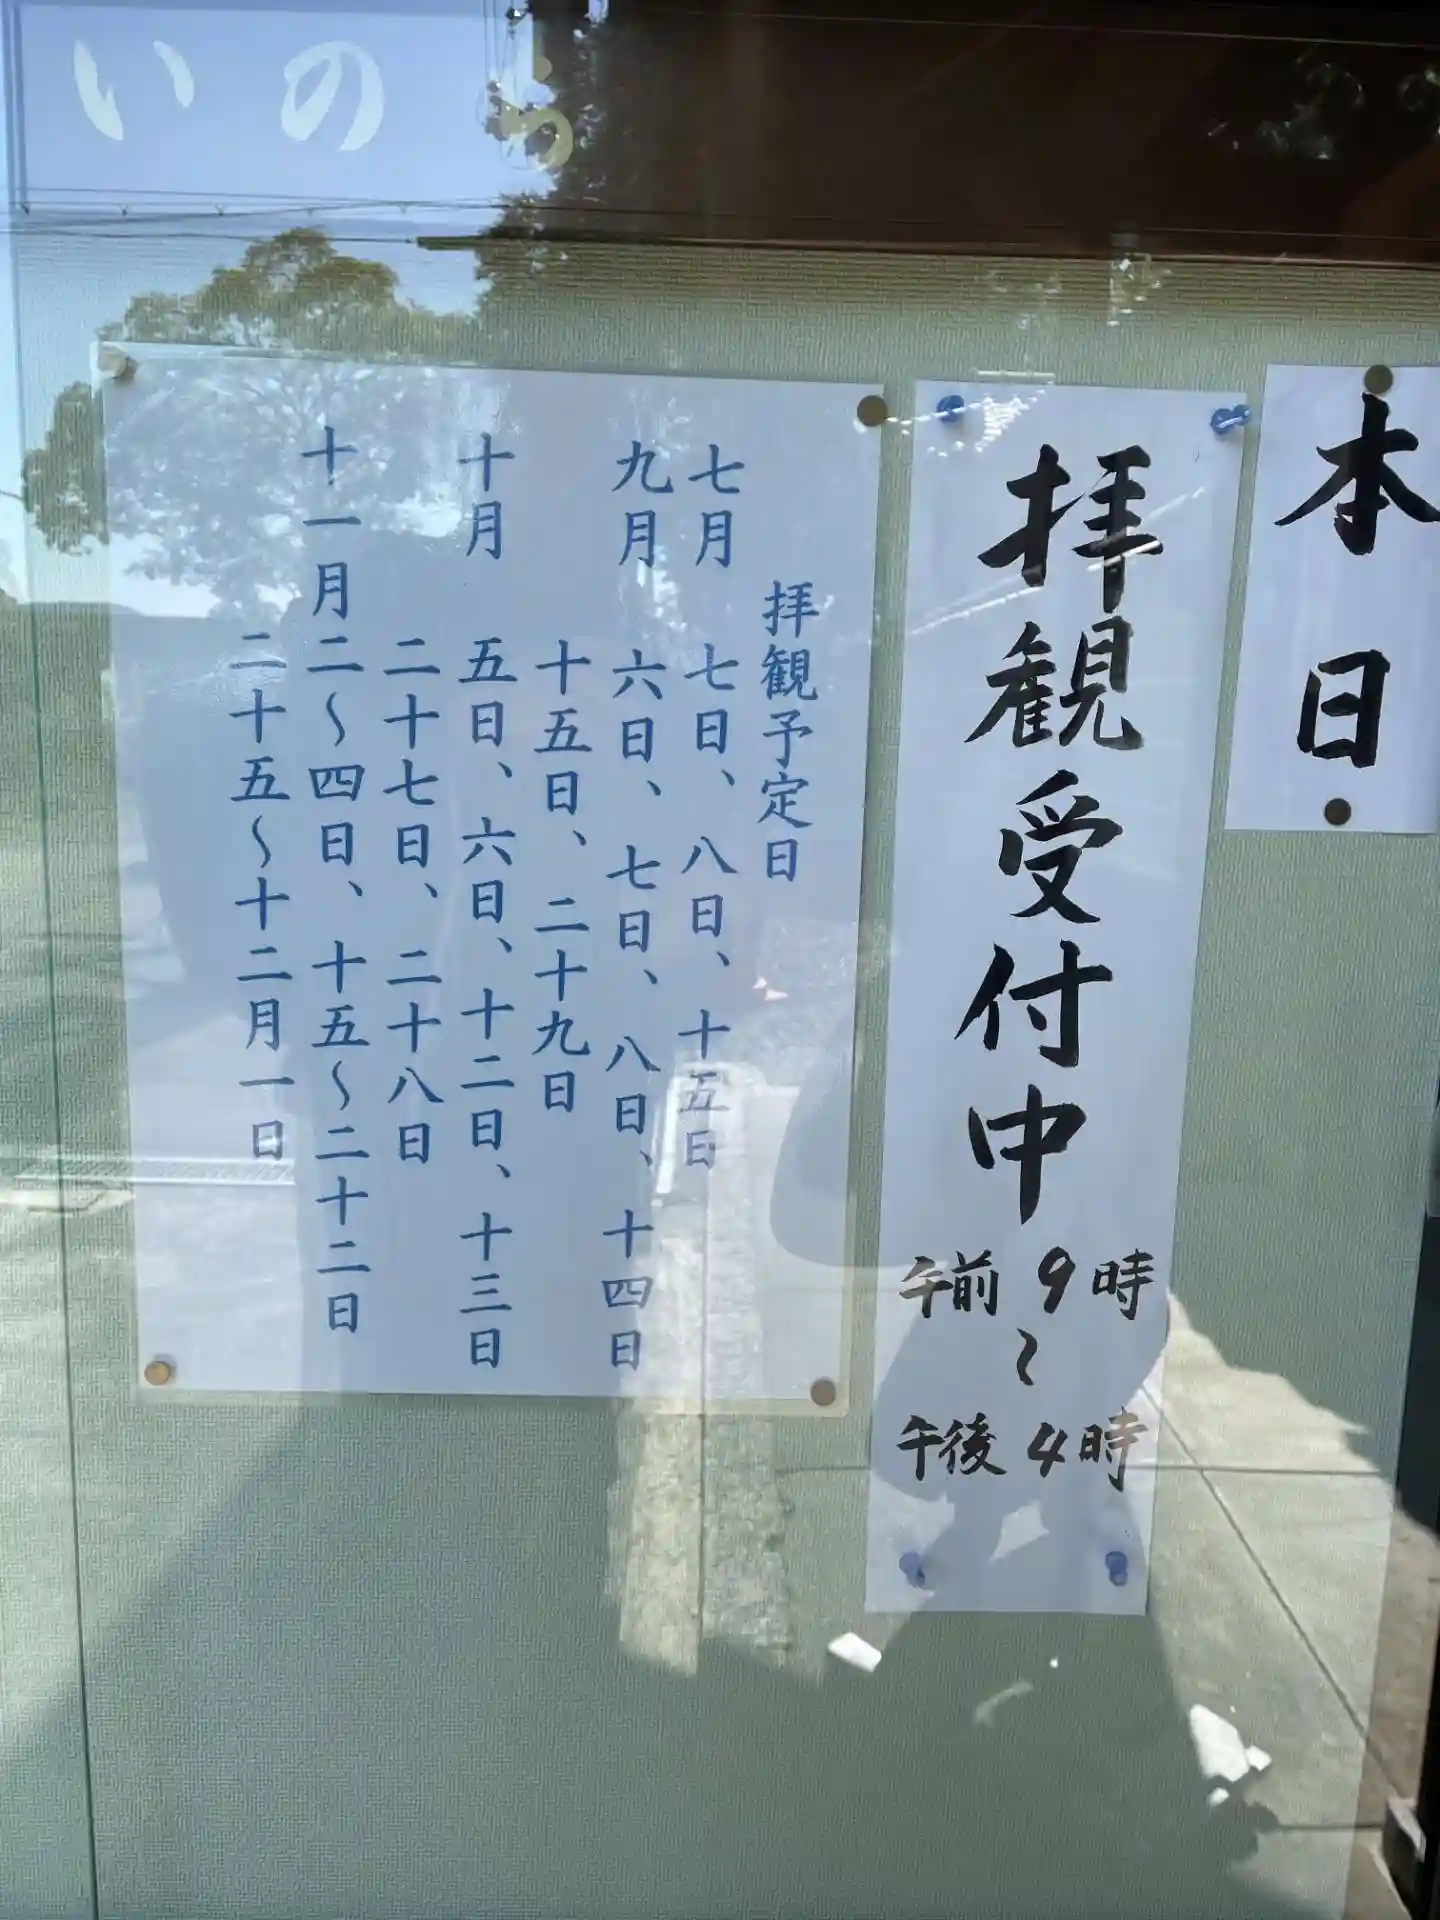 いのち
本日
拝観受付中
午前9時
〜
午後4時
拝観予定日
七月 七日、八日、十五日
九月 六日、七日、八日、十四日
十五日、二十九日
十月 五日、六日、十二日、十三日
二十七日、二十八日
十一月 二〜四日、十五〜二十二日
二十五〜十二月一日